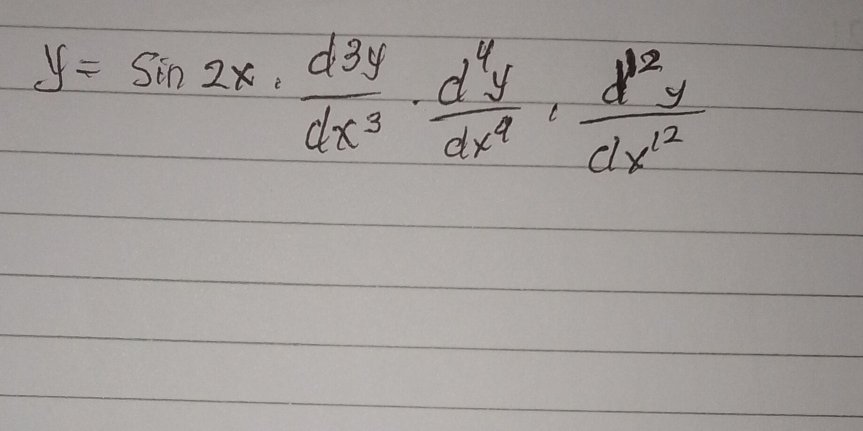 y = Sin 2x, d3y/dx³ . d⁴y/dx⁴, d¹²y/dx¹²